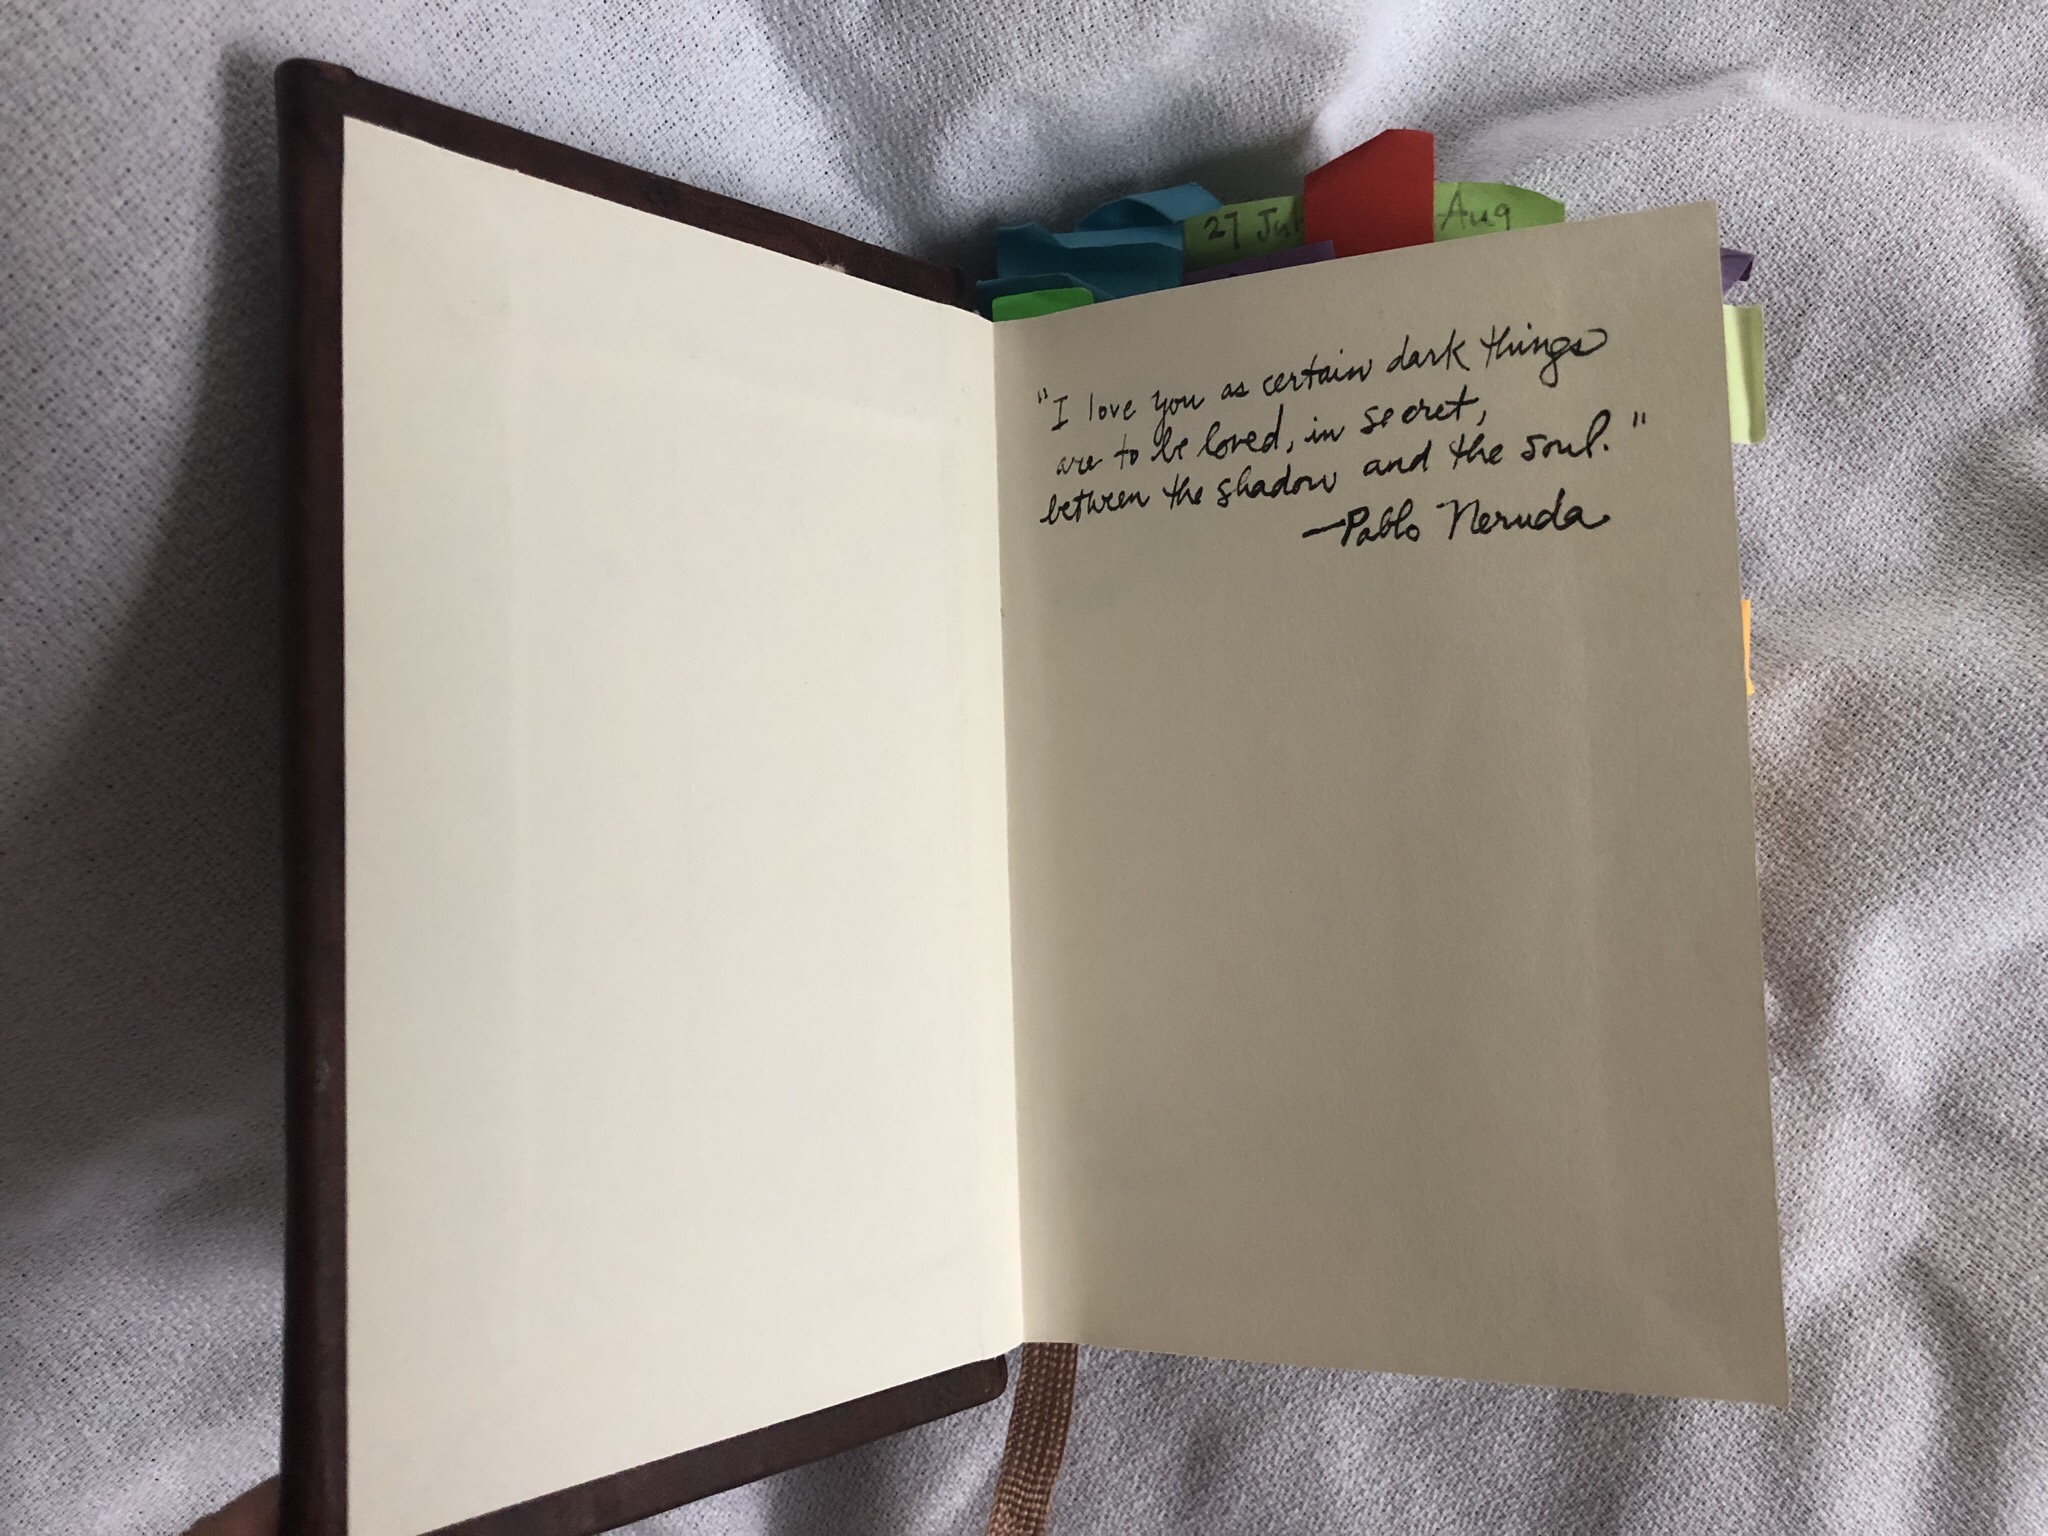 27 Jul
Aug
"I love you as certain dark things
are to be loved, in secret,
between the shadow and the soul."
—Pablo Neruda